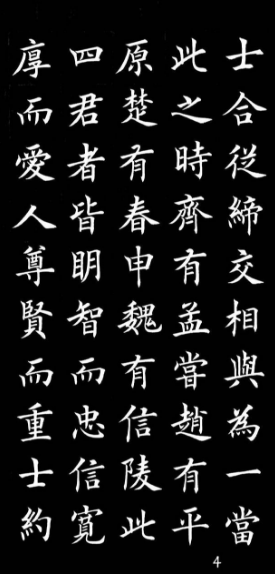 士合從締交相與為一當
此之時齊有孟嘗趙有平
原楚有春申魏有信陵此
四君者皆明智而忠信寬
厚而愛人尊賢而重士約
4